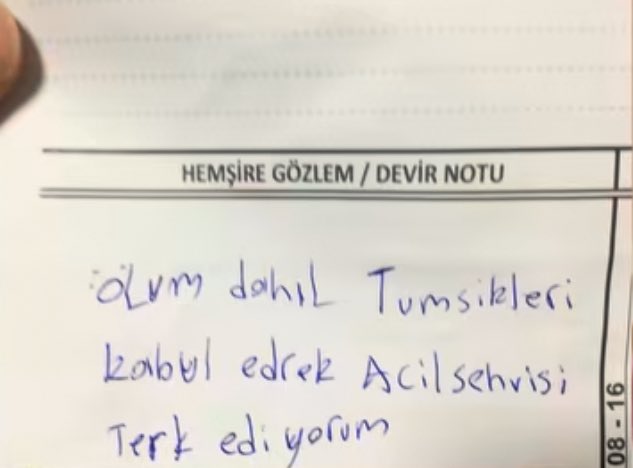 HEMŞİRE GÖZLEM / DEVİR NOTU
ölum dahil Tumsikleri
kabul edrek Acilsehvisi
Terk ediyorum
08 - 16